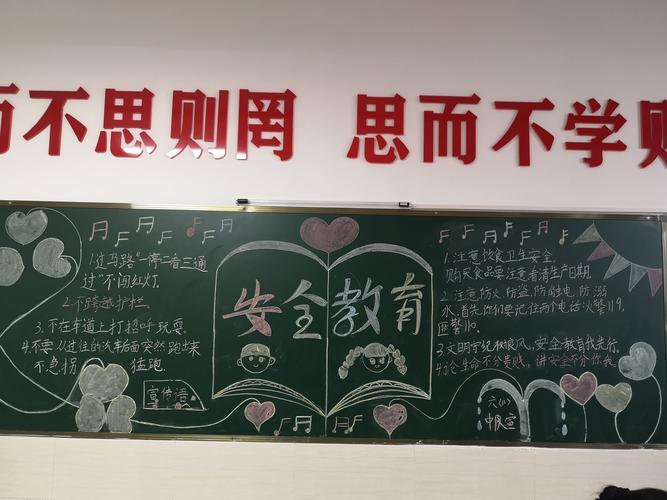 而不思则罔 思而不学则
1.过马路"一停二看三通
过"不闯红灯.
2.不跨越护栏
3.不在车道上打招呼玩耍.
4.不要从过往的汽车后面突然跑出来
不急拐 猛跑.
宣传语
安全教育
1.注意饮食卫生安全
购买食品要注意看清生产日期.
2.注意防火,防盗,防触电,防溺
水.首先你们要记住两个电话火警119,
匪警110.
3.文明守纪树新风,安全教育我先行.
4.论生命不分贵贱,讲安全不分你我.
六(11)
中队宣